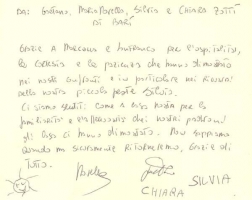 DA: GAETANO, MARIA NOVELLA, SILVIA E CHIARA ZOTTI
DI BARI
GRAZIE A MARCELLA E LANFRANCO PER L'OSPITALITÀ,
LA CORTESIA E LA PAZIENZA CHE HANNO DIMOSTRATO
NEI NOSTRI CONFRONTI E IN PARTICOLARE NEI RIGUARDI
DELLA NOSTRA PICCOLA PESTE SILVIA.
CI SIAMO SENTITI COME A CASA NOSTRA PER LA
FAMILIARITÀ E CHE I NOSTRI PADRONI
DI CASA CI HANNO DIMOSTRATO. NON SAPPIAMO
QUANDO MA SICURAMENTE RITORNEREMO. GRAZIE DI
TUTTO.
CHIARA
SILVIA